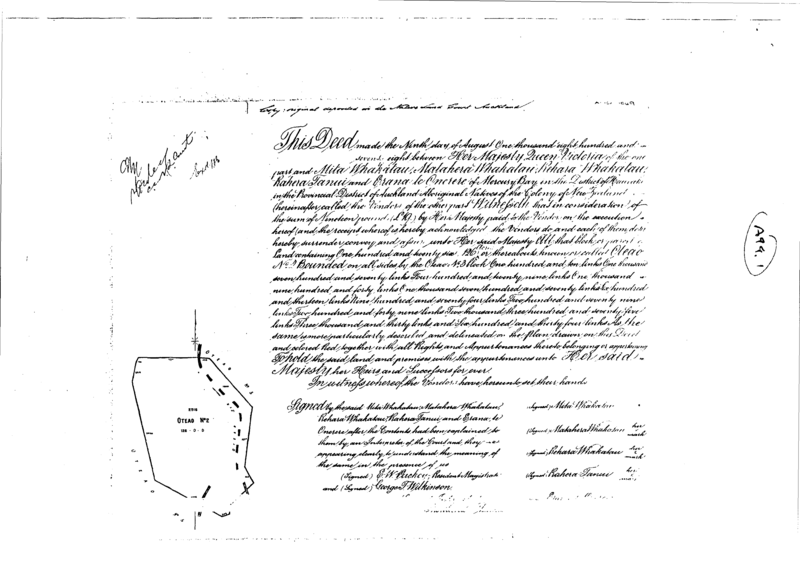 Copy: original deposited in the Native Land Court Auckland.
This Deed made the Ninth day of August One thousand eight hundred and
seventy eight between Her Majesty Queen Victoria of the one
part and Mita Whakatau, Matahera Whakatau, Rihara Whakatau,
Rahera Tanui and Erana te Onerere of Mercury Bay in the District of Hauraki
in the Provincial District of Auckland Aboriginal Natives of the Colony of New Zealand
(hereinafter called the Vendors) of the other part Witnesseth that in consideration of
the sum of Nineteen pounds (£19) by Her Majesty paid to the Vendors on the execution
hereof (and the receipt whereof is hereby acknowledged) the Vendors do and each of them does
hereby surrender convey and assure unto Her said Majesty All that block or parcel of
Land containing One hundred and twenty six 126 or thereabouts known or called Oteao
No 2 Bounded on all sides by the Oteao Block One hundred and two links One thousand
seven hundred and seventy links Four hundred and twenty nine links One thousand
nine hundred and forty links One thousand seven hundred and seventy links Six hundred
and thirteen links Nine hundred and seventy four links Two hundred and seventy nine
links Two hundred and forty nine links Two thousand three hundred and seventy five
links Three thousand and thirty links and Six hundred and thirty four links As the
same is more particularly described and delineated on the plan drawn on this Deed
and colored Red together with all Rights and Appurtenances thereto belonging or appertaining
To hold the said land and premises with the appurtenances unto Her said
Majesty her Heirs and Successors for ever
In witness whereof the Vendors have hereunto set their hands
Signed by the said Mita Whakatau, Matahera Whakatau,
Rihara Whakatau, Rahera Tanui and Erana te
Onerere after the Contents had been explained to
them by an Interpreter of the Court and they
appearing clearly to understand the meaning of
the same in the presence of us
(Signed) Resident Magistrate
and (Signed) George T Wilkinson
(Signed) Mita Whakatau
(Signed) Matahera Whakatau her mark
(Signed) Rihara Whakatau his mark
(Signed) Rahera Tanui her mark
A99.1
OTEAO Nº2
126 - 0 - 0
OTEAO